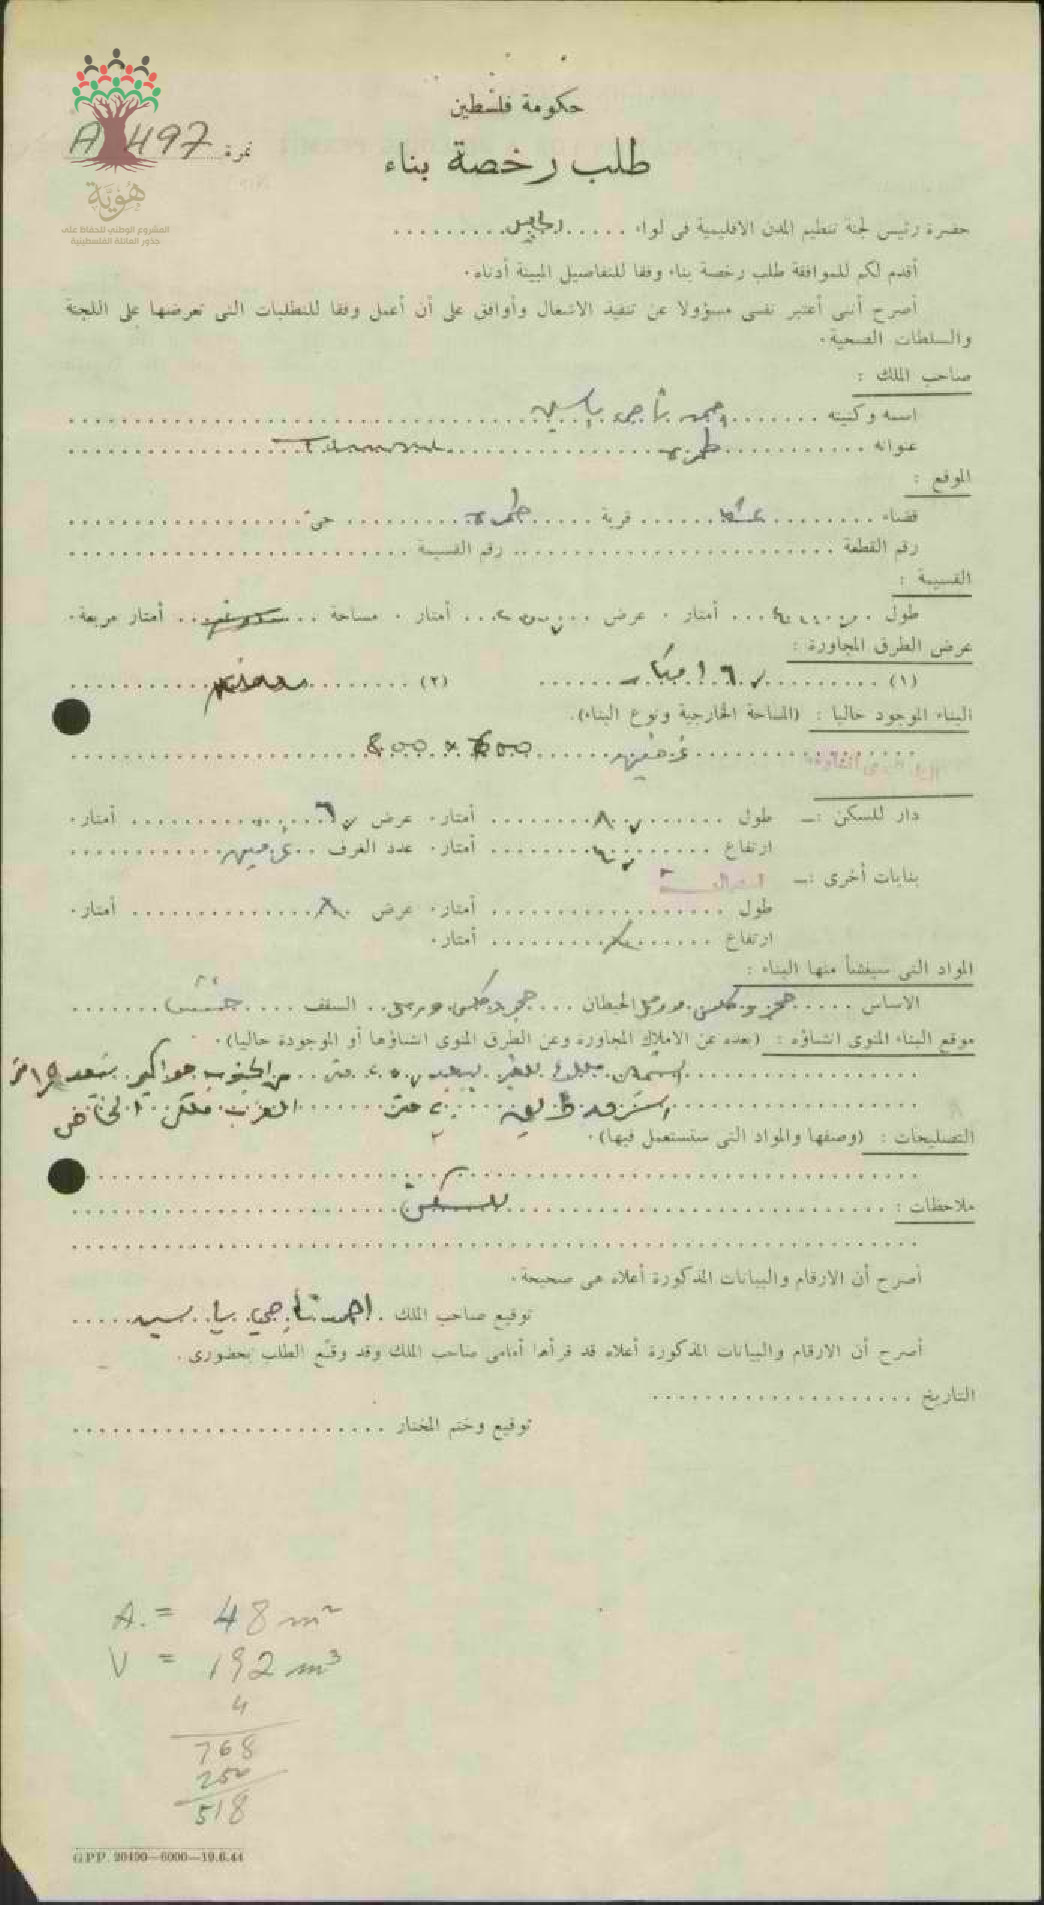 هُوِيَّة
المشروع الوطني للحفاظ على
جذور العائلة الفلسطينية
حكومة فلسطين
نمرة A 497
طلب رخصة بناء
حضرة رئيس لجنة تنظيم المدن الاقليمية فى لواء
أقدم لكم للموافقة طلب رخصة بناء وفقا للتفاصيل المبينة أدناه.
أصرح أننى أعتبر نفسى مسؤولا عن تنفيذ الاشغال وأوافق على أن أعمل وفقا للمتطلبات التى تعرضها على اللجنة
والسلطات الصحية.
صاحب الملك :
اسمه وكنيته احمد ناجي ياسين
عنوانه طمره
الموقع :
قضاء عكا قرية طمره حى
رقم القطعة رقم القسيمة
القسيمة :
طول أمتار . عرض أمتار . مساحة أمتار مربعة.
عرض الطرق المجاورة :
(١) (٢)
البناء الموجود حاليا : (المساحة الخارجية ونوع البناء).
غرفتين
دار للسكن :— طول ٨ أمتار. عرض ٦ أمتار.
ارتفاع ٤ أمتار. عدد الغرف غرفتين
بنايات أخرى :—
طول أمتار. عرض أمتار.
ارتفاع أمتار.
المواد التى سينشأ منها البناء :
الاساس حجر وكلس ورمل الحيطان حجر وكلس ورمل السقف خشب
موقع البناء المنوى انشاؤه : (بعده عن الاملاك المجاورة وعن الطرق المنوى انشاؤها أو الموجودة حاليا).
التصليحات : (وصفها والمواد التى ستستعمل فيها).
ملاحظات : للسكن
أصرح أن الارقام والبيانات المذكورة أعلاه هى صحيحة.
توقيع صاحب الملك احمد ناجي ياسين
أصرح أن الارقام والبيانات المذكورة أعلاه قد قرأها أمامى صاحب الملك وقد وقّع الطلب بحضورى.
التاريخ
توقيع وختم المختار
A. = 48 m²
V = 192 m³
4
768
250
518
G.P.P. 20400—6000—19.6.44